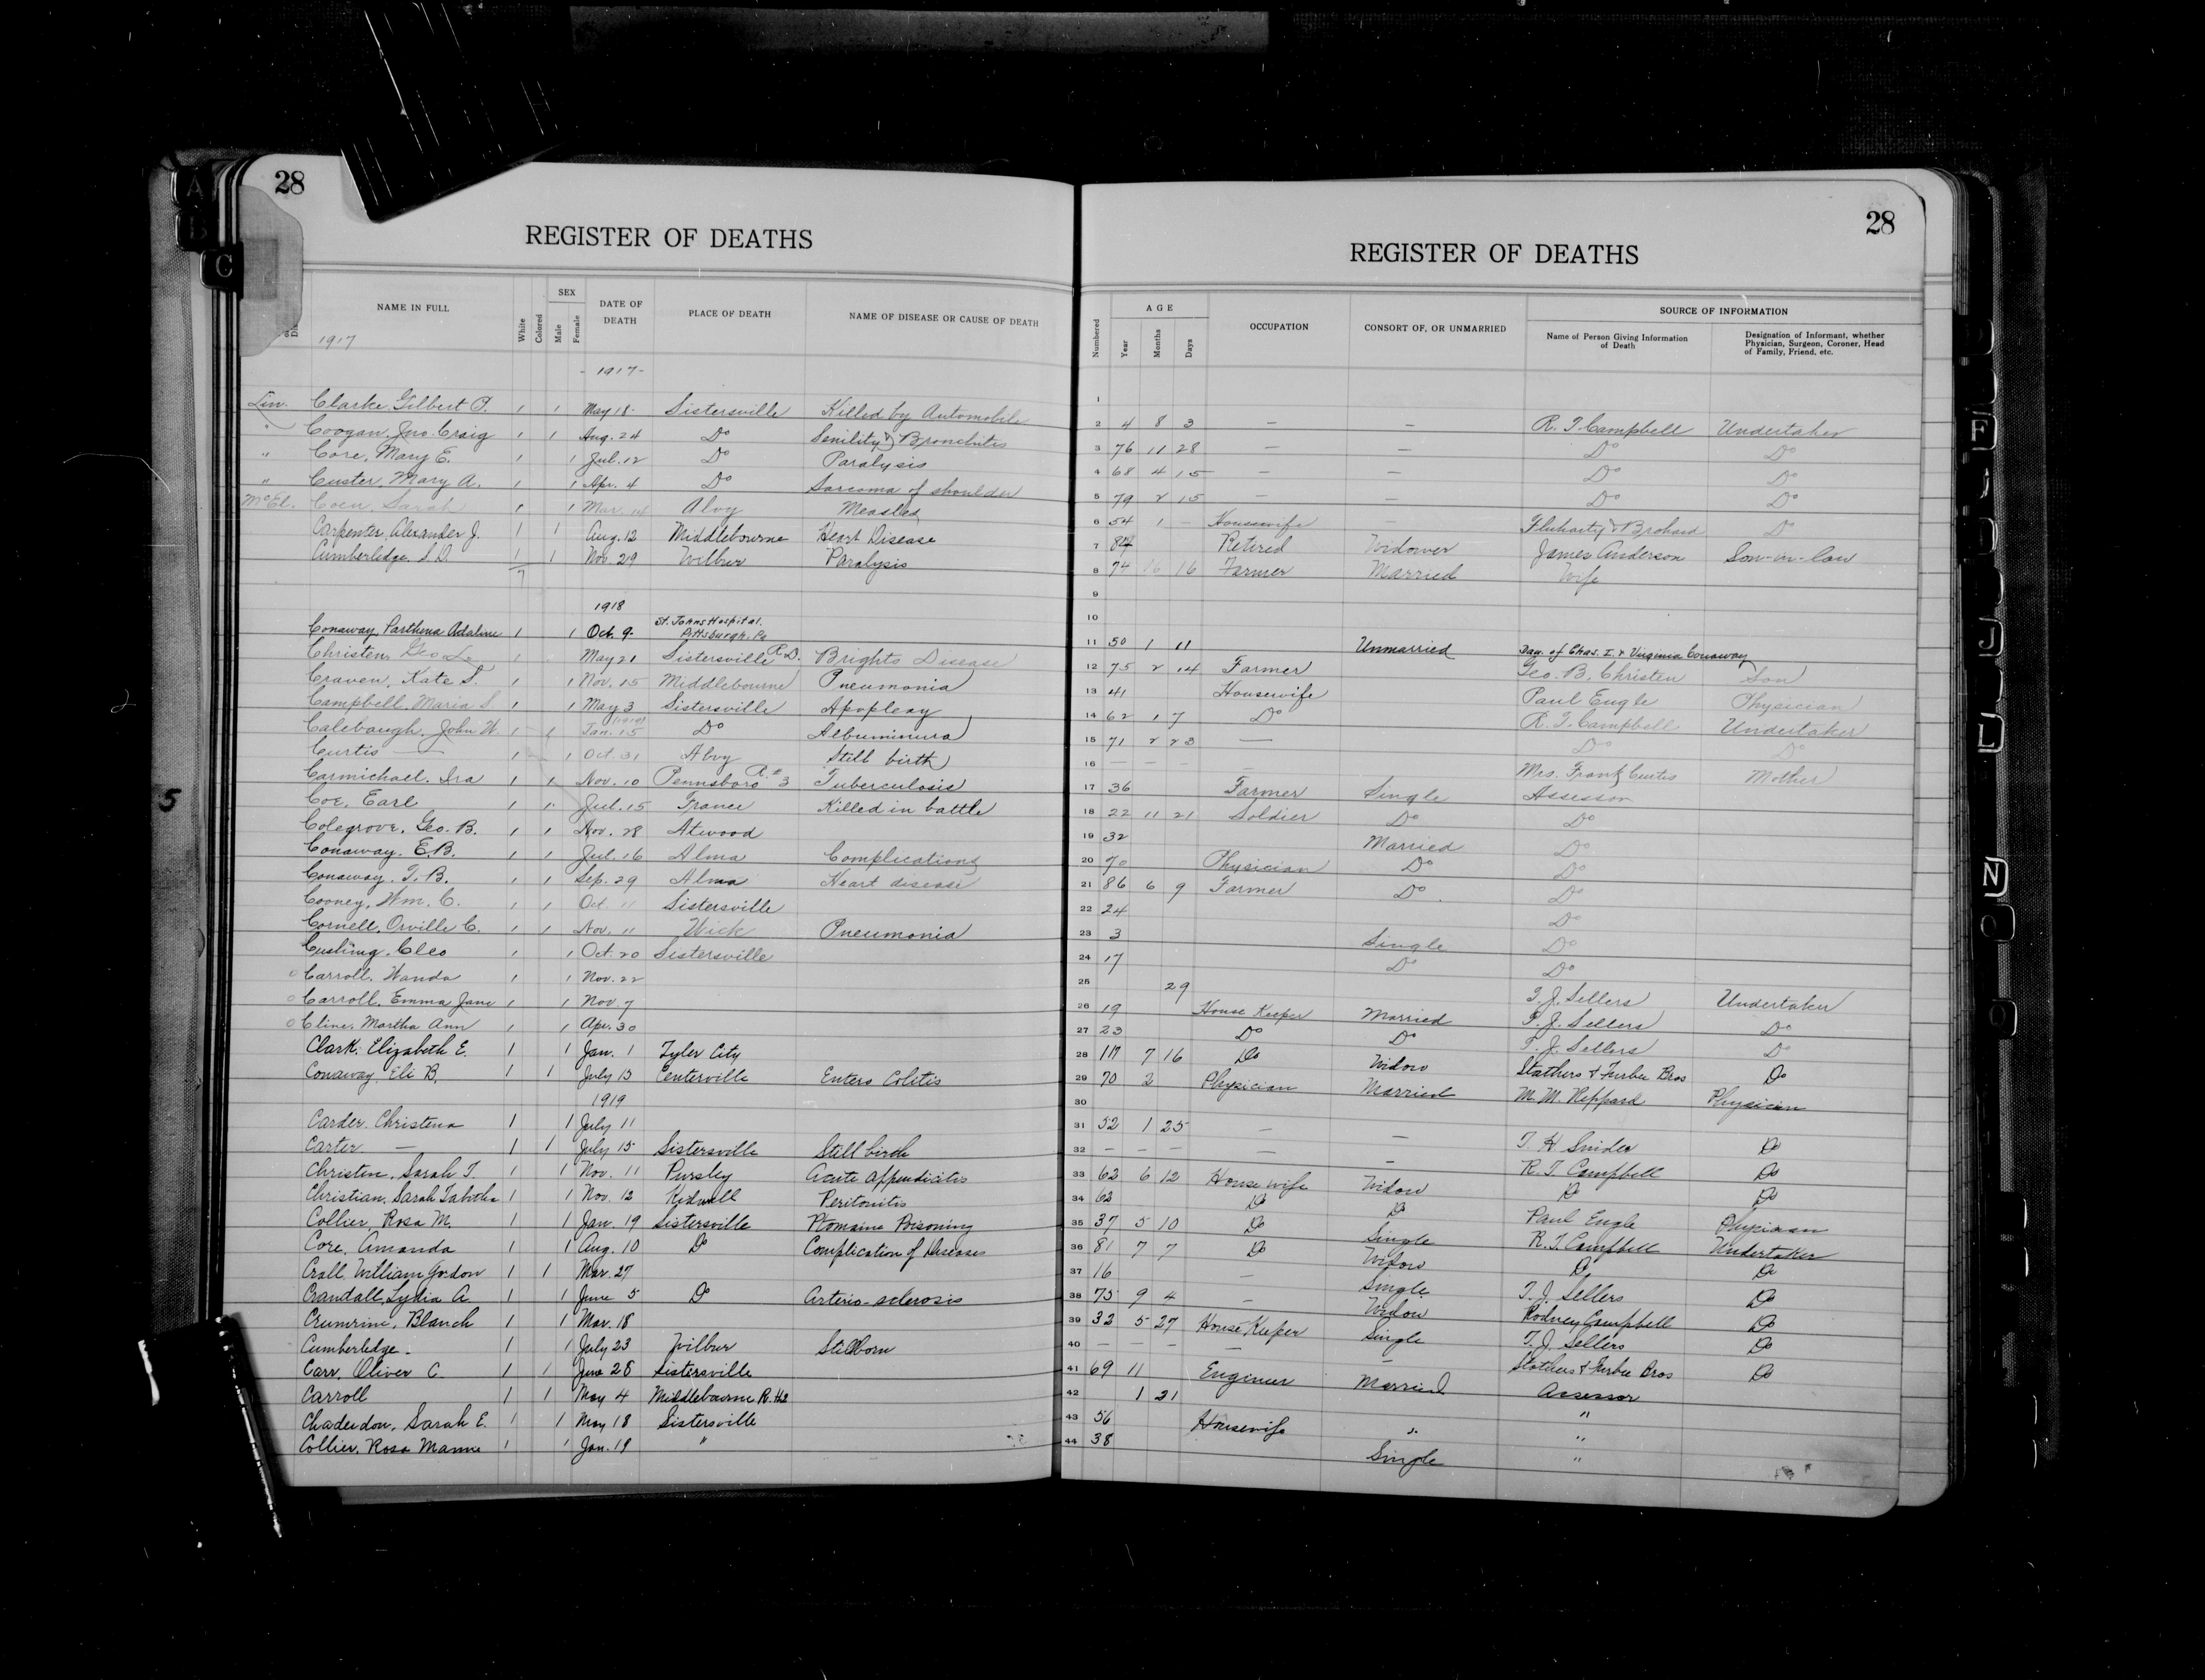 28
REGISTER OF DEATHS
NAME IN FULL White Colored SEX Male Female DATE OF DEATH PLACE OF DEATH NAME OF DISEASE OR CAUSE OF DEATH
1917
- 1917 -
Lin. Clarke, Gilbert P. 1 1 May 18 - Sistersville Killed by Automobile
" Coogan, Jno. Craig 1 1 Aug. 24 Do Senility & Bronchitis
" Core, Mary E. 1 1 Jul. 12 Do Paralysis
" Custer, Mary A. 1 1 Apr. 4 Do Sarcoma of shoulder
McEl. Coen, Sarah 1 1 Mar. 14 Alvy Measles
Carpenter, Alexander J. 1 1 Aug. 12 Middlebourne Heart Disease
Cumberledge, S. D. 1 1 Nov 29 Wilbur Paralysis
7
1918
Conaway, Parthena Adaline 1 1 Oct. 9 - St. Johns Hospital. Pittsburgh, Pa
Christen, Geo L. 1 May 21 Sistersville R.D. Brights Disease
Craven, Kate S. 1 1 Nov. 15 Middlebourne Pneumonia
Campbell, Maria S. 1 1 May 3 Sistersville Apoplexy
Calebaugh, John W. 1 1 Jan. 15 (1919) Do Albuminura
Curtis — 1 1 Oct. 31 Alvy Still birth
Carmichael, Ira 1 1 Nov. 10 Pennsboro R.# 3 Tuberculosis
Coe, Earl 1 1 Jul. 15 France Killed in battle
Colegrove, Geo. B. 1 1 Nov. 28 Atwood
Conaway, E.B. 1 1 Jul. 16 Alma Complications
Conaway, T. B. 1 1 Sep. 29 Alma Heart disease
Cooney, Wm. C. 1 1 Oct. 11 Sistersville
Cornell, Orville C. 1 1 Nov. 11 Wick Pneumonia
Cushing, Cleo 1 Oct. 20 Sistersville
o Carroll, Wanda 1 1 Nov. 22
o Carroll, Emma Jane 1 1 Nov. 7
o Cline, Martha Ann 1 1 Apr. 30
Clark, Elizabeth E. 1 1 Jan. 1 Tyler City
Conaway, Eli B. 1 1 July 15 Centerville Entero Colitis
1919
Carder, Christena 1 1 July 11
Carter — 1 1 July 15 Sistersville Still birth
Christen, Sarah T. 1 1 Nov. 11 Pursley Acute Appendicitis
Christian, Sarah Tabitha 1 1 Nov. 12 Kidwell Peritonitis
Collier, Rosa M. 1 1 Jan. 19 Sistersville Ptomaine Poisoning
Core, Amanda 1 1 Aug. 10 Do Complication of Diseases
Crall, William Gordon 1 1 Mar. 27
Crandall, Lydia A. 1 1 June 5 Do Arterio-sclerosis
Crumrine, Blanch 1 1 Mar. 18
Cumberledge - 1 1 July 23 Wilbur Stillborn
Carr, Oliver C. 1 1 June 28 Sistersville
Carroll 1 1 May 4 Middlebourne R. #2
Chaderdon, Sarah E. 1 1 May 18 Sistersville
Collier, Rosa Mamie 1 1 Jan. 19 "
28
REGISTER OF DEATHS
Numbered AGE Year Months Days OCCUPATION CONSORT OF, OR UNMARRIED SOURCE OF INFORMATION
Name of Person Giving Information of Death
Designation of Informant, whether Physician, Surgeon, Coroner, Head of Family, Friend, etc.
1
2 4 8 3 — — R. T. Campbell Undertaker
3 76 11 28 — — Do Do
4 68 4 15 — — Do Do
5 79 2 15 — — Do Do
6 54 1 - Housewife — Fluharty & Brohard Do
7 84 Retired Widower James Anderson Son-in-law
8 74 16 16 Farmer Married Wife
9
10
11 50 1 11 Unmarried Dau. of Chas. I. & Virginia Conaway
12 75 2 14 Farmer Geo. B. Christen Son
13 41 Housewife Paul Engle Physician
14 62 1 7 Do R. T. Campbell Undertaker
15 71 2 23 — Do Do
16 — — — — Mrs. Frank Curtis Mother
17 36 Farmer Single Assessor
18 22 11 21 Soldier Do Do
19 32 Married Do
20 70 Physician Do Do
21 86 6 9 Farmer Do Do
22 24 Do
23 3 Single Do
24 17 Do Do
25 29 T. J. Sellers Undertaker
26 19 House Keeper Married T. J. Sellers Do
27 23 Do Do T. J. Sellers Do
28 117 7 16 Do Widow Stathers & Furbee Bros Do
29 70 2 Physician Married M. M. Reppard Physician
30
31 52 1 25 — — T. H. Snider Do
32 — — — — — R. T. Campbell Do
33 62 6 12 House wife Widow Do Do
34 62 Do Do Paul Engle Physician
35 37 5 10 Do Single R. T. Campbell Undertaker
36 81 7 7 Do Widow Do Do
37 16 — Single T. J. Sellers Do
38 75 9 4 — Widow Rodney Campbell Do
39 32 5 27 House Keeper Single T. J. Sellers Do
40 — — — — — Stathers & Furbee Bros Do
41 69 11 Engineer Married Assessor
42 1 21 "
43 56 Housewife " "
44 38 Single "
A
B
C
5
F
J
L
N
O